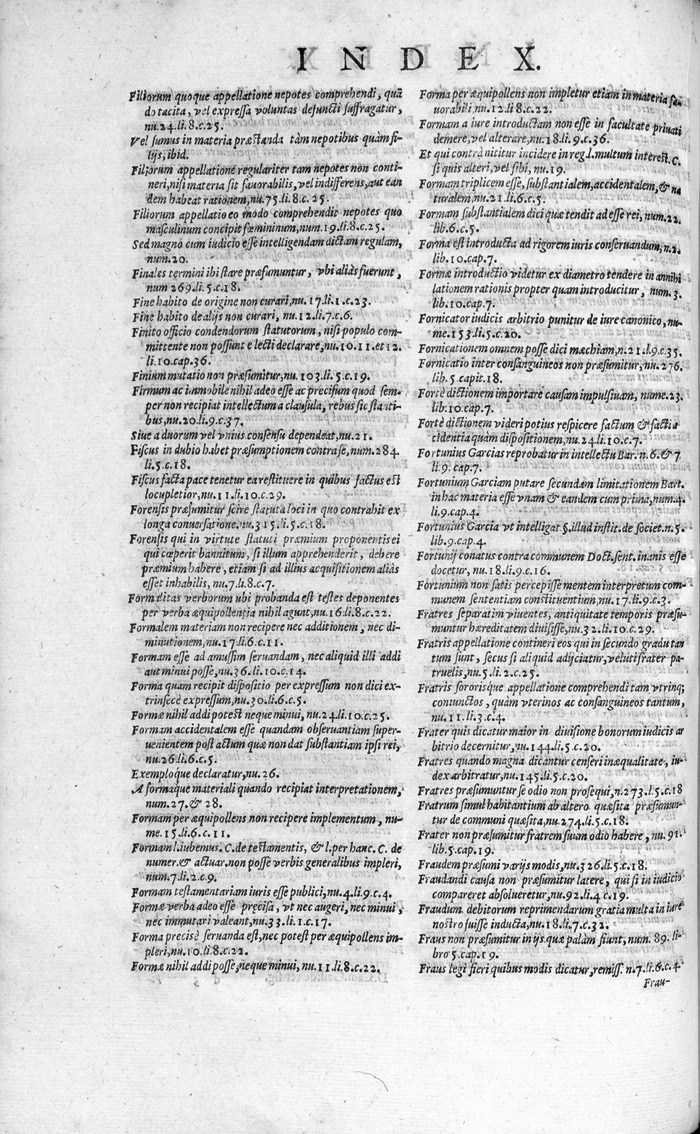 INDEX.
Filiorum quoque appellatione nepotes comprehendi, quā
do tacita, vel expressa voluntas defuncti suffragatur,
nu.24.li.8.c.25.
Vel sumus in materia præstanda tàm nepotibus quàm fi-
lijs, ibid.
Filiorum appellatione regulariter tam nepotes non conti-
neri, nisi materia sit fauorabilis, vel indifferens, aut ean
dem habeat rationem, nu.75.li.8.c.25.
Filiorum appellatio eo modo comprehendit nepotes quo
masculinum concipit fœmininum, num.19.li.8.c.25.
Sed magno cum iudicio esse intelligendam dictam regulam,
num.20.
Finales termini ibi stare præsumuntur, vbi aliàs fuerunt,
num 269.li.5.c.18.
Fine habito de origine non curari, nu.17.li.1.c.23.
Fine habito de alijs non curari, nu.12.li.7.c.6.
Finito officio condendorum statutorum, nisi populo com-
mittente non possunt electi declarare, nu.10.11.et 12.
li.10.cap.36.
Finium mutatio non præsumitur, nu.103.li.5.c.19.
Firmum ac immobile nihil adeo esse ac precisum quod sem-
per non recipiat intellectum a clausula, rebus sic stanti-
bus, nu.20.li.9.c.37.
Siue a duorum vel vnius consensu dependeat, nu.21.
Fiscus in dubio habet præsumptionem contra se, num.284
li.5.c.18.
Fiscus facta pace tenetur ea restituere in quibus factus est
locupletior, nu.11.li.10.c.29.
Forensis præsumitur scire statuta loci in quo contrahit ex
longa conuersatione. nu.315.li.5.c.18.
Forensis qui in virtute statuti præmium proponentis ei
qui cæperit bannitum, si illum apprehenderit, debere
præmium habere, etiam si ad illius acquisitionem aliàs
esset inhabilis, nu.7.li.8.c.7.
Formalitas verborum ubi probanda est testes deponentes
per verba æquipollentia nihil agunt, nu.16.li.8.c.22.
Formalem materiam non recipere nec additionem, nec di-
minutionem, nu.17.li.6.c.11.
Formam esse ad amussim seruandam, nec aliquid illi addi
aut minui posse, nu.36.li.10.c.14.
Forma quam recipit dispositio per expressum non dici ex-
trinsecè expressum, nu.30.li.6.c.5.
Formæ nihil addi potest neque minui, nu.24.li.10.c.25.
Formam accidentalem esse quandam obseruantiam super-
uenientem post actum quæ non dat substantiam ipsi rei,
nu.26.li.6.c.5.
Exemploque declaratur, nu.26.
A formaque materiali quando recipiat interpretationem,
num.27.& 28.
Formam per æquipollens non recipere implementum, nu-
me.15.li.6.c.11.
Formam l.iubemus.C.de testamentis, & l.per hanc.C.de
numer.& actuar.non posse verbis generalibus impleri,
num.7.li.2.c.9.
Formam testamentariam iuris esse publici, nu.4.li.9.c.4.
Formæ verba adeo esse precisa, vt nec augeri, nec minui,
nec immutari valeant, nu.33.li.1.c.17.
Forma precisè seruanda est, nec potest per æquipollens im-
pleri, nu.10.li.8.c.22.
Formæ nihil addi posse, neque minui, nu.11.li.8.c.22.
Forma per æquipollens non impletur etiam in materia fa-
uorabili nu.12.li.8.c.22.
Formam a iure introductam non esse in facultate priuati
demere, vel alterare, nu.18.li.9.c.36.
Et qui contrà nititur incidere in reg.l.multum interest.C.
si quis alteri, vel sibi, nu.19.
Formam triplicem esse, substantialem, accidentalem, & na
turalem, nu.21.li.6.c.5.
Formam substantialem dici quæ tendit ad esse rei, num.22.
lib.6.c.5.
Forma est introducta ad rigorem iuris conseruandum, n.2.
lib.10.cap.7.
Formæ introductio videtur ex diametro tendere in annihi
lationem rationis propter quam introducitur, num.3.
lib.10.cap.7.
Fornicator iudicis arbitrio punitur de iure canonico, nu-
me.153.li.5.c.20.
Fornicationem omnem posse dici mæchiam, n.21.l.9.c.35.
Fornicatio inter consanguineos non præsumitur, nu.276.
lib.5.capit.18.
Fortè dictionem importare causam impulsiuam, nume.23.
lib.10.cap.7.
Fortè dictionem videri potius respicere factum & facti a
cidentia quàm dispositionem, nu.24.li.10.c.7.
Fortunius Garcias reprobatur in intellectu Bar. n.6.& 7
li.9.cap.7.
Fortunium Garciam putare secundam limitationem Bart.
in hac materia esse vnam & eandem cum prima, num.4.
li.9.cap.4.
Fortunius Garcia vt intelligat §.illud instit.de societ.n.5.
lib.9.cap.4.
Fortunij conatus contra communem Doct.sent.inanis esse
docetur, nu.18.li.9.c.16.
Fortunium non satis percepisse mentem interpretum com-
munem sententiam constituentium, nu.17.li.9.c.3.
Fratres separatim viuentes, antiquitate temporis præsu-
muntur hæreditatem diuisisse, nu.32.li.10.c.29.
Fratris appellatione contineri eos qui in secundo gradu tan
tum sunt, secus si aliquid adijciatur, veluti frater pa-
truelis, nu.5.li.2.c.25.
Fratris sororisque appellatione comprehendi tam vtrinq;
coniunctos, quàm vterinos ac consanguineos tantum,
nu.11.li.3.c.4.
Frater quis dicatur maior in diuisione bonorum iudicis ar
bitrio decernitur, nu.144.li.5.c.20.
Fratres quando magna dicantur censeri inæqualitate, iu-
dex arbitratur, nu.145.li.5.c.20.
Fratres præsumuntur se odio non prosequi, n.273.l.5.c.18
Fratrum simul habitantium ab altero quæsita præsumun-
tur de communi quæsita, nu.274.li.5.c.18.
Frater non præsumitur fratrem suum odio habere, nu.91.
lib.5.cap.19.
Fraudem præsumi varijs modis, nu.326.li.5.c.18.
Fraudandi causa non præsumitur latere, qui si in iudicio
compareret absolueretur, nu.92.li.4.c.19.
Fraudum debitorum reprimendarum gratia multa in iure
nostro fuisse inducta, nu.18.li.7.c.32.
Fraus non præsumitur in ijs quæ palàm fiunt, num.89.li-
bro 5.cap.19.
Fraus legi fieri quibus modis dicatur, remiss.n.7.li.6.c.4.
Frau-